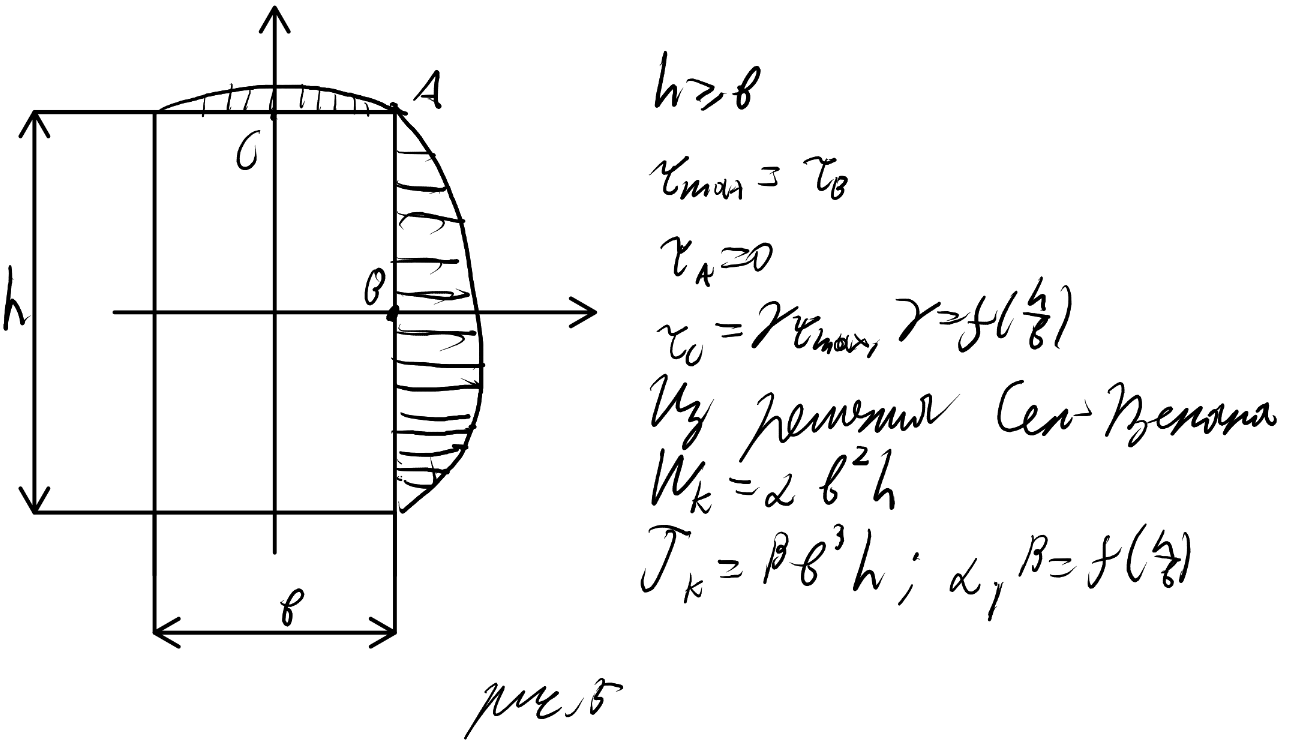 A
C
B
h
в
h ≥ в
τmax = τB
τA = 0
τC = γτmax, γ = f(h/в)
Из решения Сен-Венана
Wк = α в²h
Jк = β в³h; α, β = f(h/в)
рис. 5